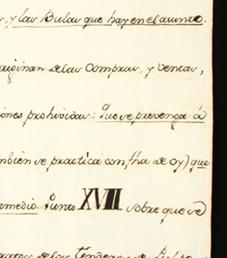 , y las Bulas que hay en el asunto.
originan de las Compras, y Ventas,
ones prohividas: Que se prevenga á
mbien se practica con fha de oy) que
remedio. Punto XVIII sobre que se
de los Tenderos de